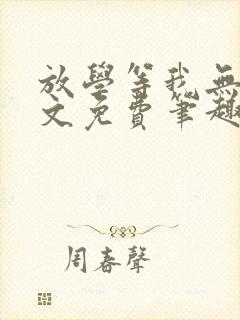 放學等我無
文免費筆趣
周春聲